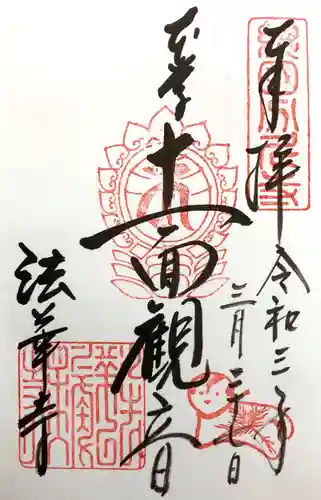 奉拝
令和三年
三月二十七日
本尊
十一面観音
法華寺